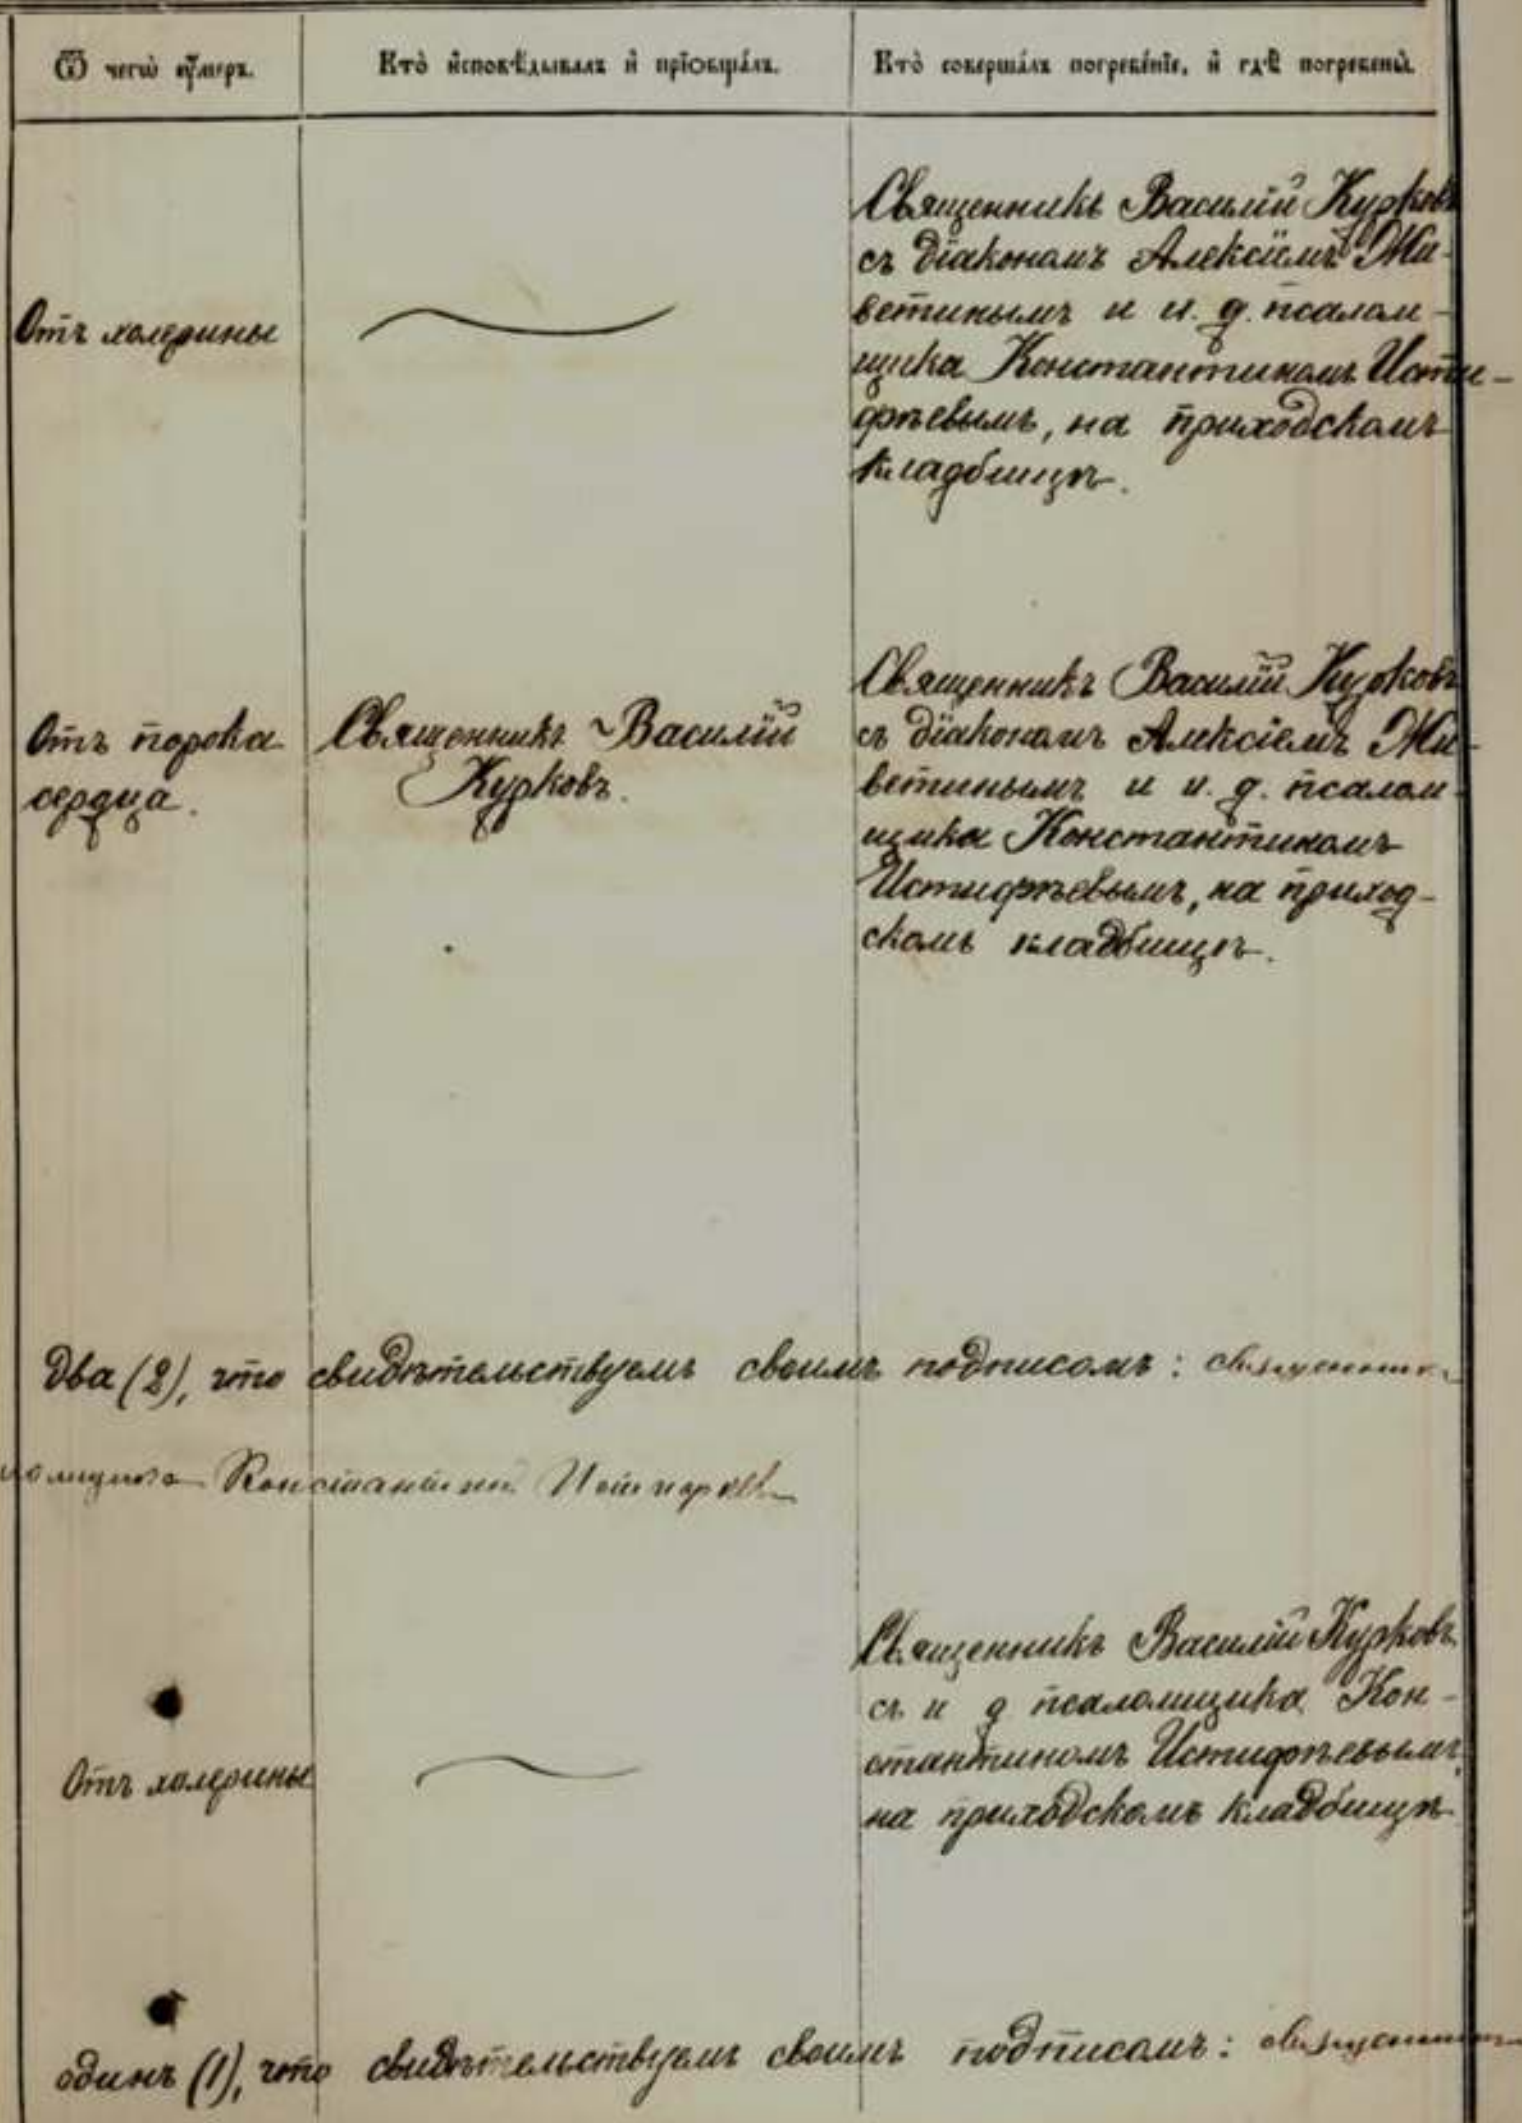 Ѿ чегѡ ᲂу҆́меръ.
Кто̀ и҆сповѣ́дывалъ и҆ прїѻбща́лъ.
Кто̀ соверша́лъ погребе́нїе, и҆ гдѣ̀ погребены̀.
Отъ холерины
Священникъ Василій Курковъ
съ діакономъ Алексіемъ Ми-
ветинымъ и и. д. псалом-
щика Константиномъ Исти-
фѣевымъ, на приходскомъ
кладбищѣ.
Отъ порока
сердца.
Священникъ Василій
Курковъ.
Священникъ Василій Курковъ
съ діакономъ Алексіемъ Ми-
ветинымъ и и. д. псалом-
щика Константиномъ
Истифѣевымъ, на приход-
скомъ кладбищѣ.
два (2), что свидѣтельствуемъ своимъ подписомъ: священникъ
Константинъ Истифѣевъ
Отъ холерины
Священникъ Василій Курковъ
съ и д псаломщика Кон-
стантиномъ Истифѣевымъ,
на приходскомъ кладбищѣ
одинъ (1), что свидѣтельствуемъ своимъ подписомъ: священникъ